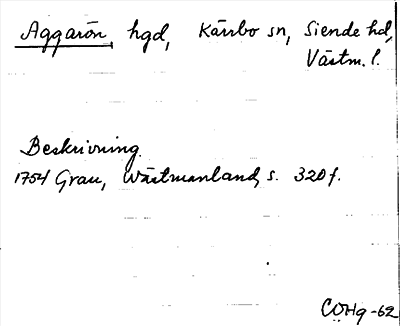 Aggarön, hgd, Kärrbo sn, Siende hd,
Västm. l.
Beskrivning
1754 Grau, Wästmanland, s. 320 f.
COHg-62